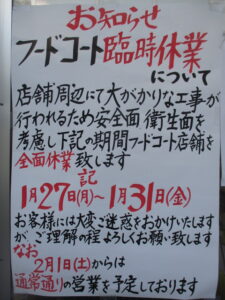 お知らせ
フードコート臨時休業
について
店舗周辺にて大がかりな工事が
行われるため安全面 衛生面を
考慮し下記の期間フードコート店舗を
全面休業致します
記
1月27日(月)～1月31日(金)
お客様には大変ご迷惑をおかけいたします
が、ご理解の程 よろしくお願い致します
なお
2月1日(土)からは
通常通りの営業を予定しております